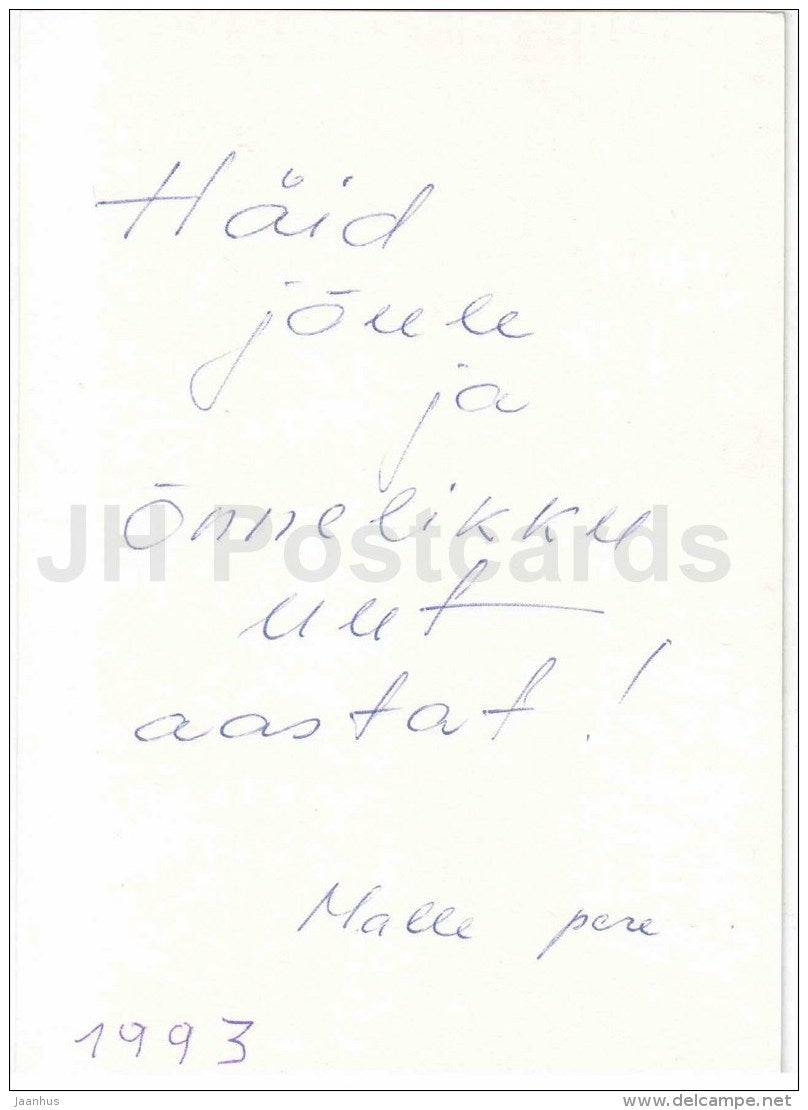 Häid
jõule
ja
õnnelikku
uut
aastat!
Malle pere
1993
JH Postcards
Jaanhus
www.delcampe.net